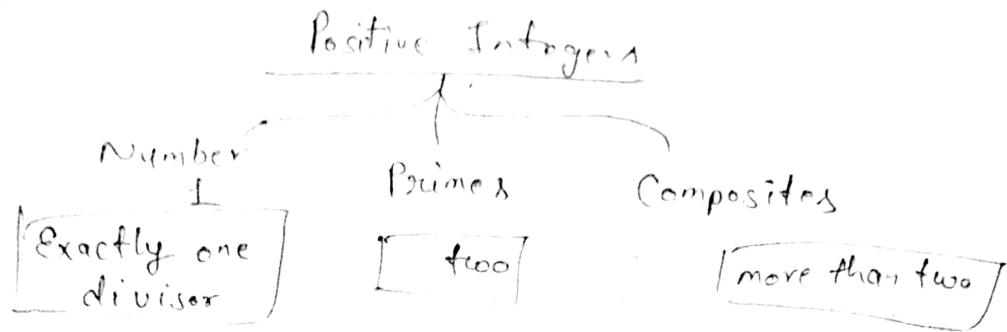 Positive Integers
Number
1
Primes
Composites
Exactly one
divisor
two
more than two